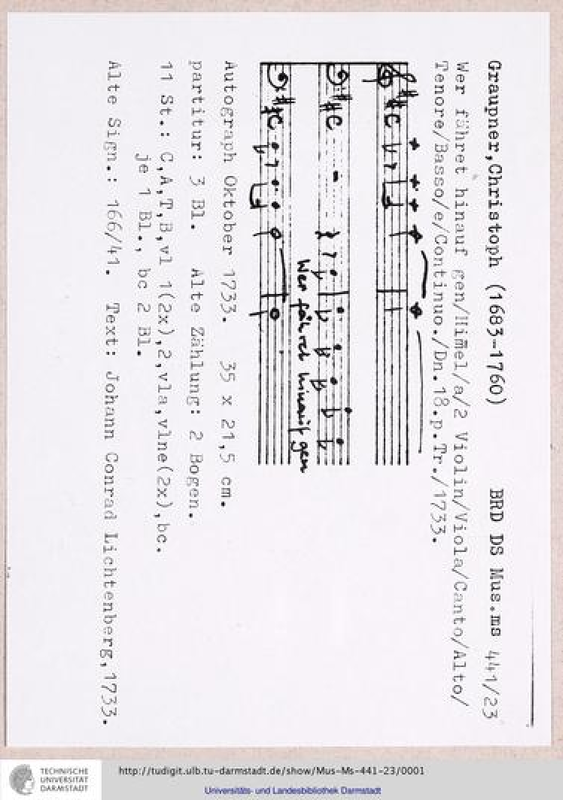 Graupner,Christoph (1683-1760) BRD DS Mus.ms 441/23
Wer fähret hinauf gen/Him̄el/a/2 Violin/Viola/Canto/Alto/
Tenore/Basso/e/Continuo./Dn.18.p.Tr./1733.
Wer fähret hinauf gen
Autograph Oktober 1733. 35 x 21,5 cm.
partitur: 3 Bl. Alte Zählung: 2 Bogen.
11 St.: C,A,T,B,vl 1(2x),2,vla,vlne(2x),bc.
je 1 Bl., bc 2 Bl.
Alte Sign.: 166/41. Text: Johann Conrad Lichtenberg,1733.
TECHNISCHE
UNIVERSITÄT
DARMSTADT
http://tudigit.ulb.tu-darmstadt.de/show/Mus-Ms-441-23/0001
Universitäts- und Landesbibliothek Darmstadt